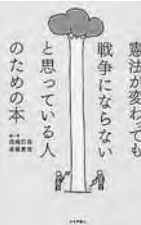 憲法が変わっても
戦争にならない
と思っている人
のための本